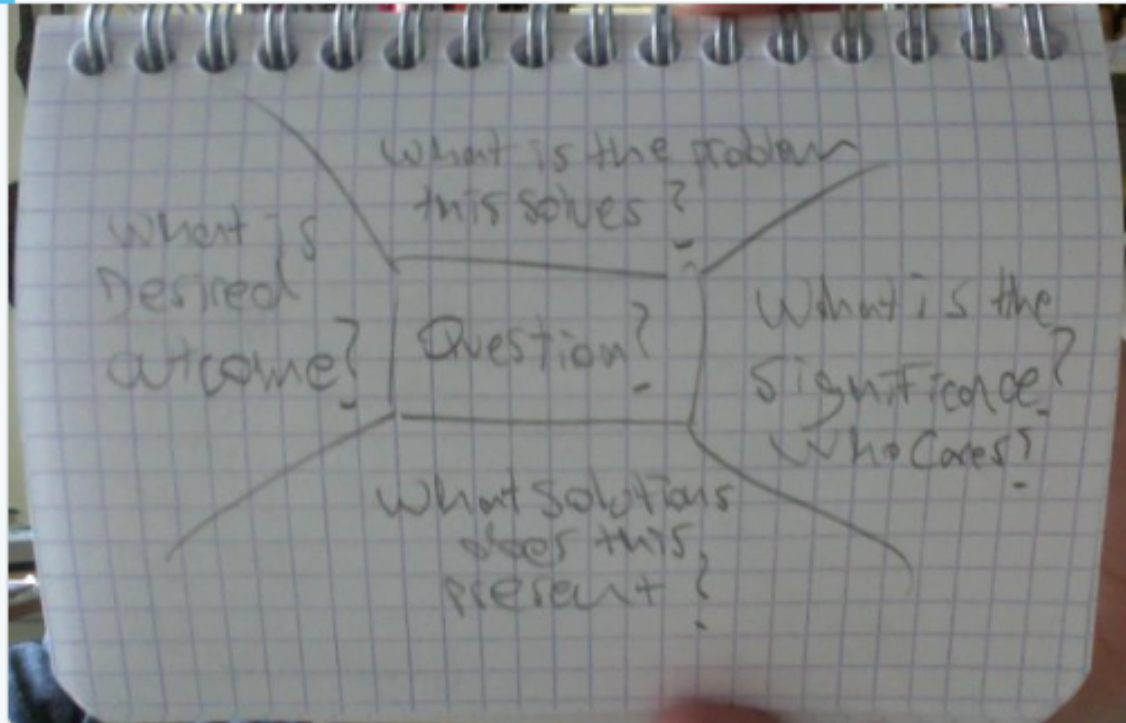 What is the problem
this solves?
What is
Desired
outcome?
Question?
What is the
Significance?
Who Cares?
What Solutions
does this
present?